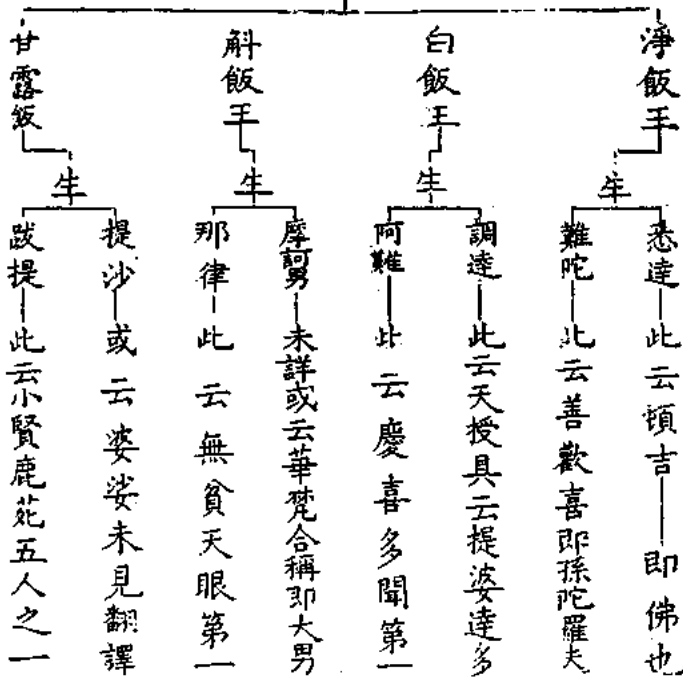 淨飯王
生
悉達 此云頓吉 即佛也
難陀 此云善歡喜即孫陀羅夫
白飯王
生
調達 此云天授具云提婆達多
阿難 此云慶喜多聞第一
斛飯王
生
摩訶男 未詳或云華梵合稱即大男
那律 此云無貧天眼第一
甘露飯
生
提沙 或云婆娑未見翻譯
跋提 此云小賢鹿苑五人之一